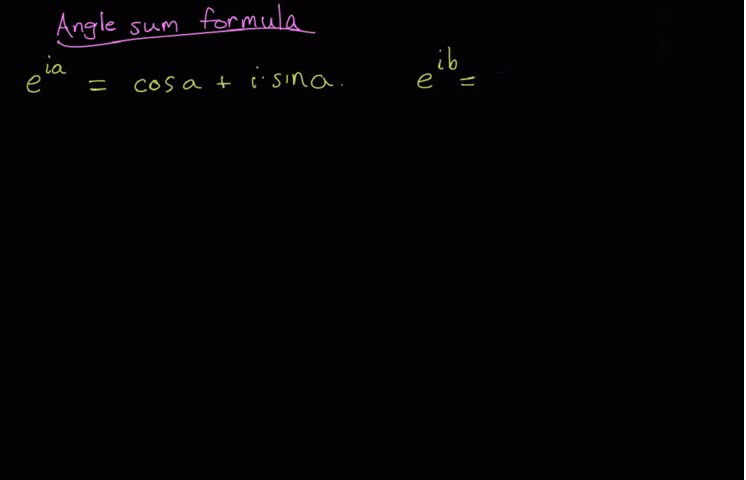 Angle sum formula
e^{ia} = cos a + i·sin a. e^{ib} =